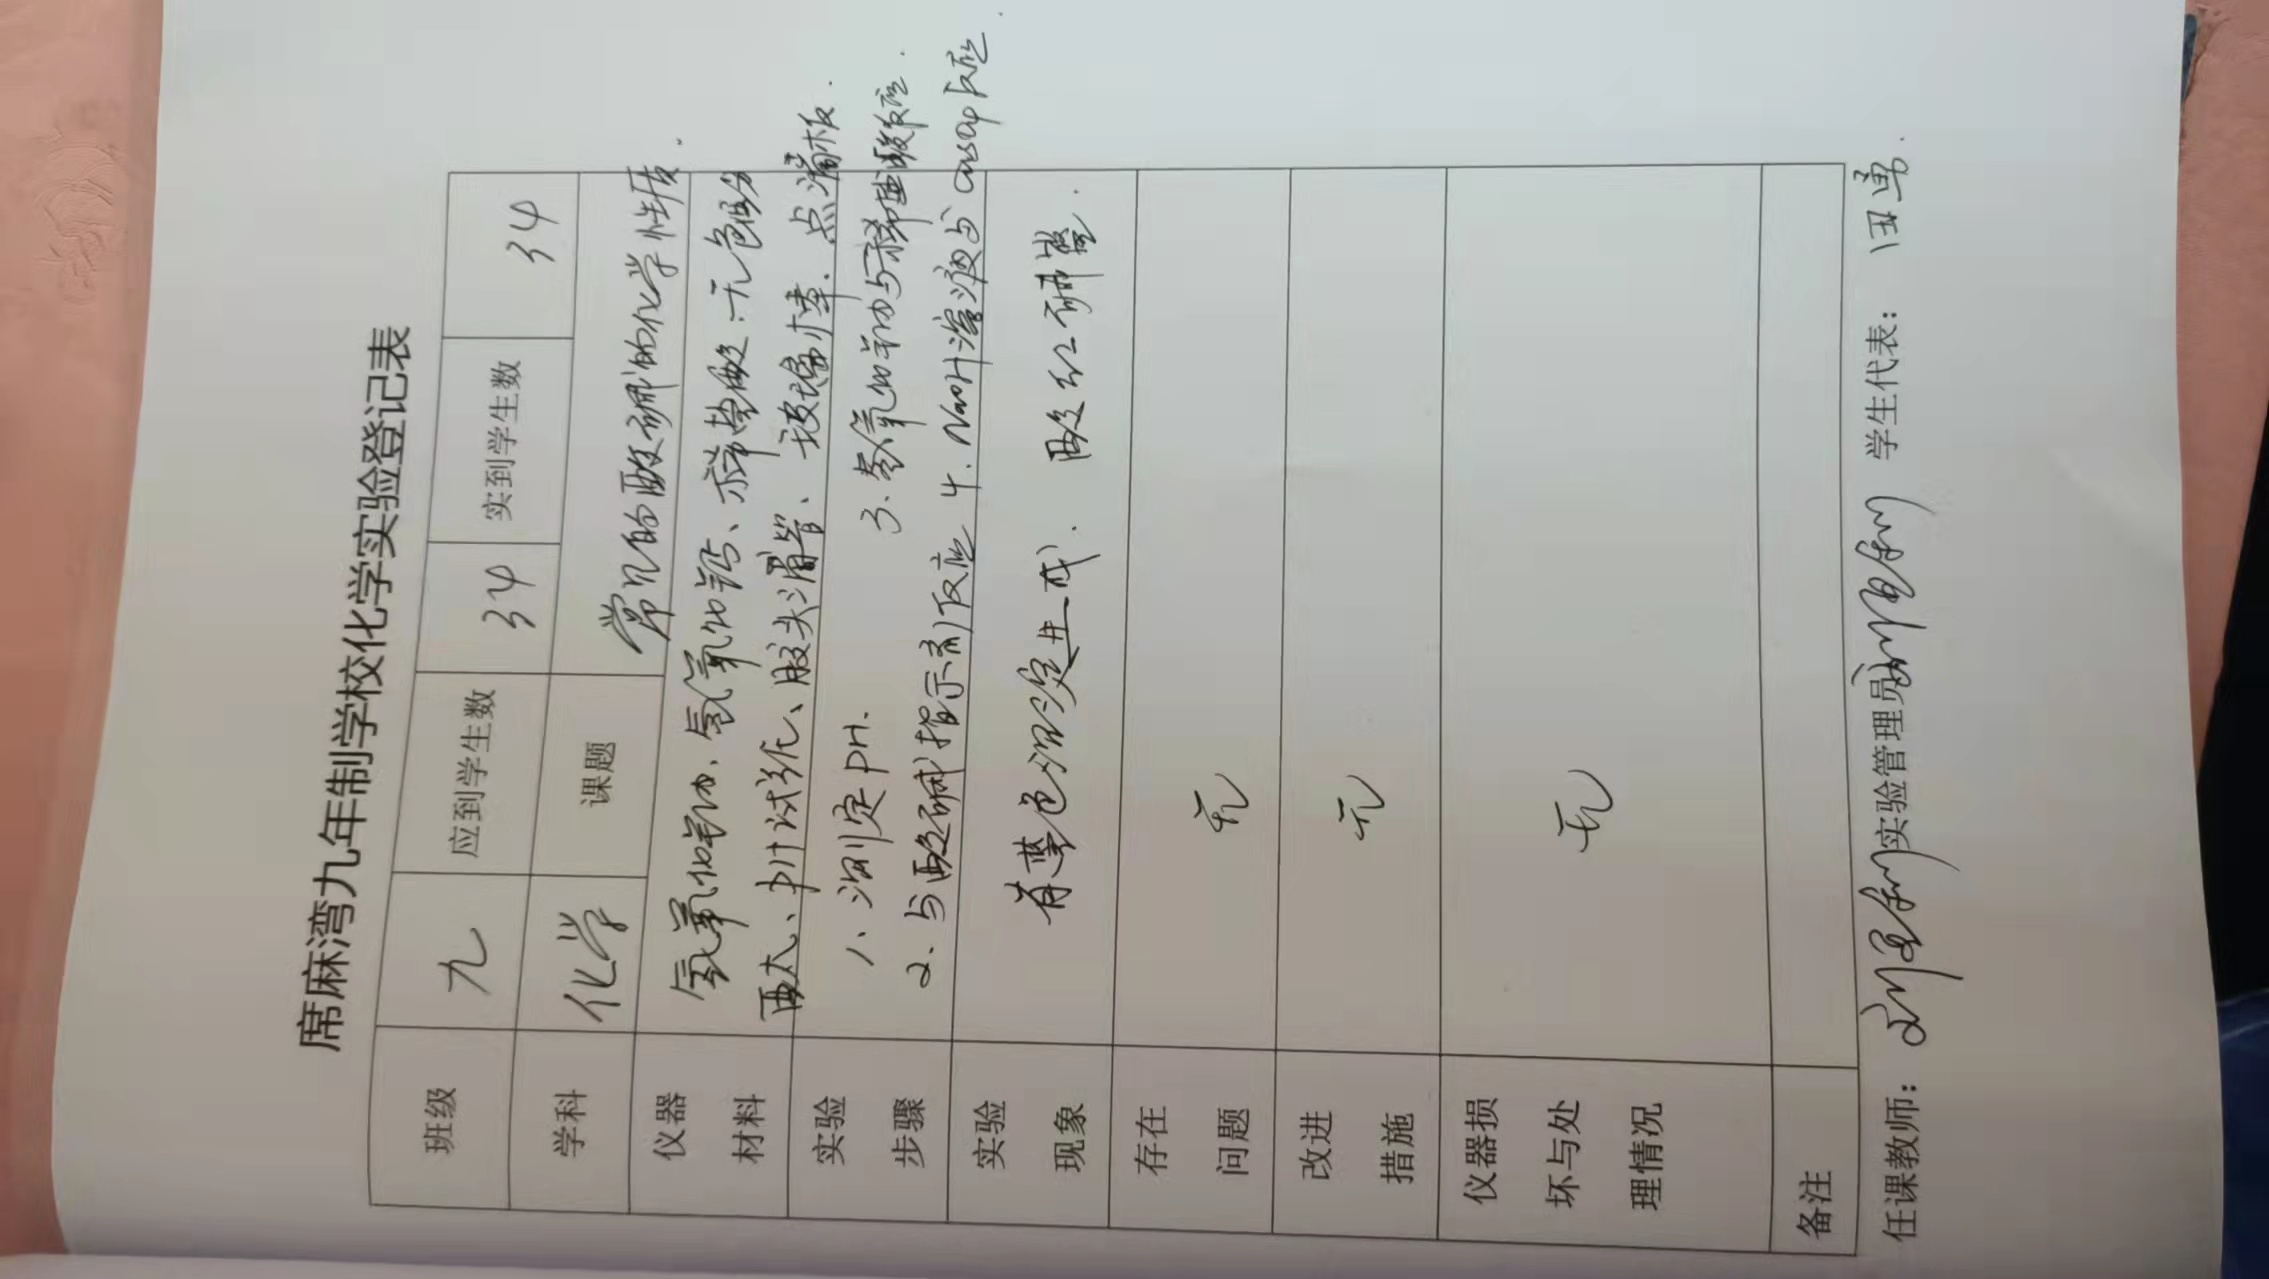 席麻湾九年制学校化学实验登记表
班级 九 应到学生数 34 实到学生数 34
学科 化学 课题 常见的酸碱的化学性质.
仪器材料 氢氧化钠、氢氧化钙、稀盐酸、无色酚
酞、PH试纸、胶头滴管、玻璃棒.点滴板.
实验步骤 1、测定PH. 3.氢氧化钠与稀盐酸反应.
2.与酸碱指示剂反应 4.NaOH溶液与CuSO4反应.
实验现象 有蓝色沉淀生成. 酸红碱蓝.
存在问题 无
改进措施 无
仪器损坏与处理情况 无
备注
任课教师: 实验管理员 学生代表: